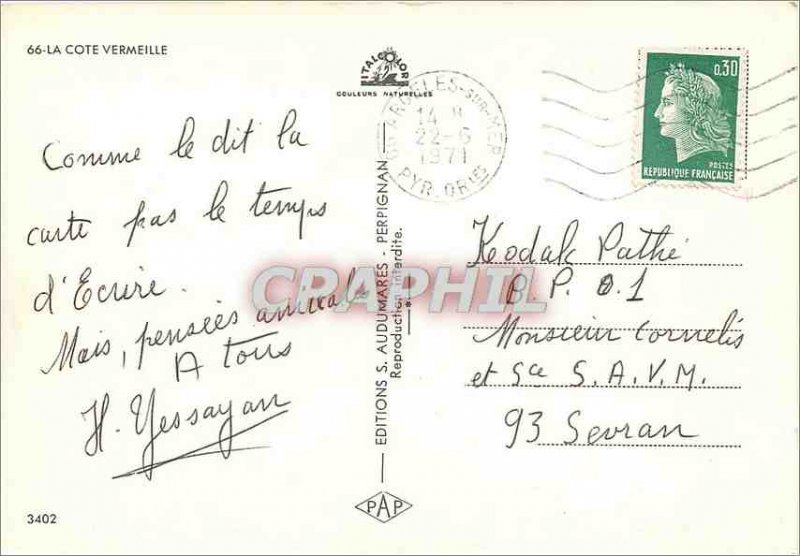 66-LA COTE VERMEILLE
ITALCOLOR
COULEURS NATURELLES
66 ARGELES-SUR-MER
14 H
22-6
1971
PYR. ORIES
0,30
POSTES
REPUBLIQUE FRANÇAISE
Comme le dit la
carte pas le temps
d'Ecrire.
Mais, pensées amicales
A tous
H. Yessayan
EDITIONS S. AUDUMARES - PERPIGNAN
Reproduction interdite.
CRAPHIL
Kodak Pathé
B. P. 0.1
Monsieur Cornelis
et Sce S.A.V.M.
93 Sevran
PAP
3402